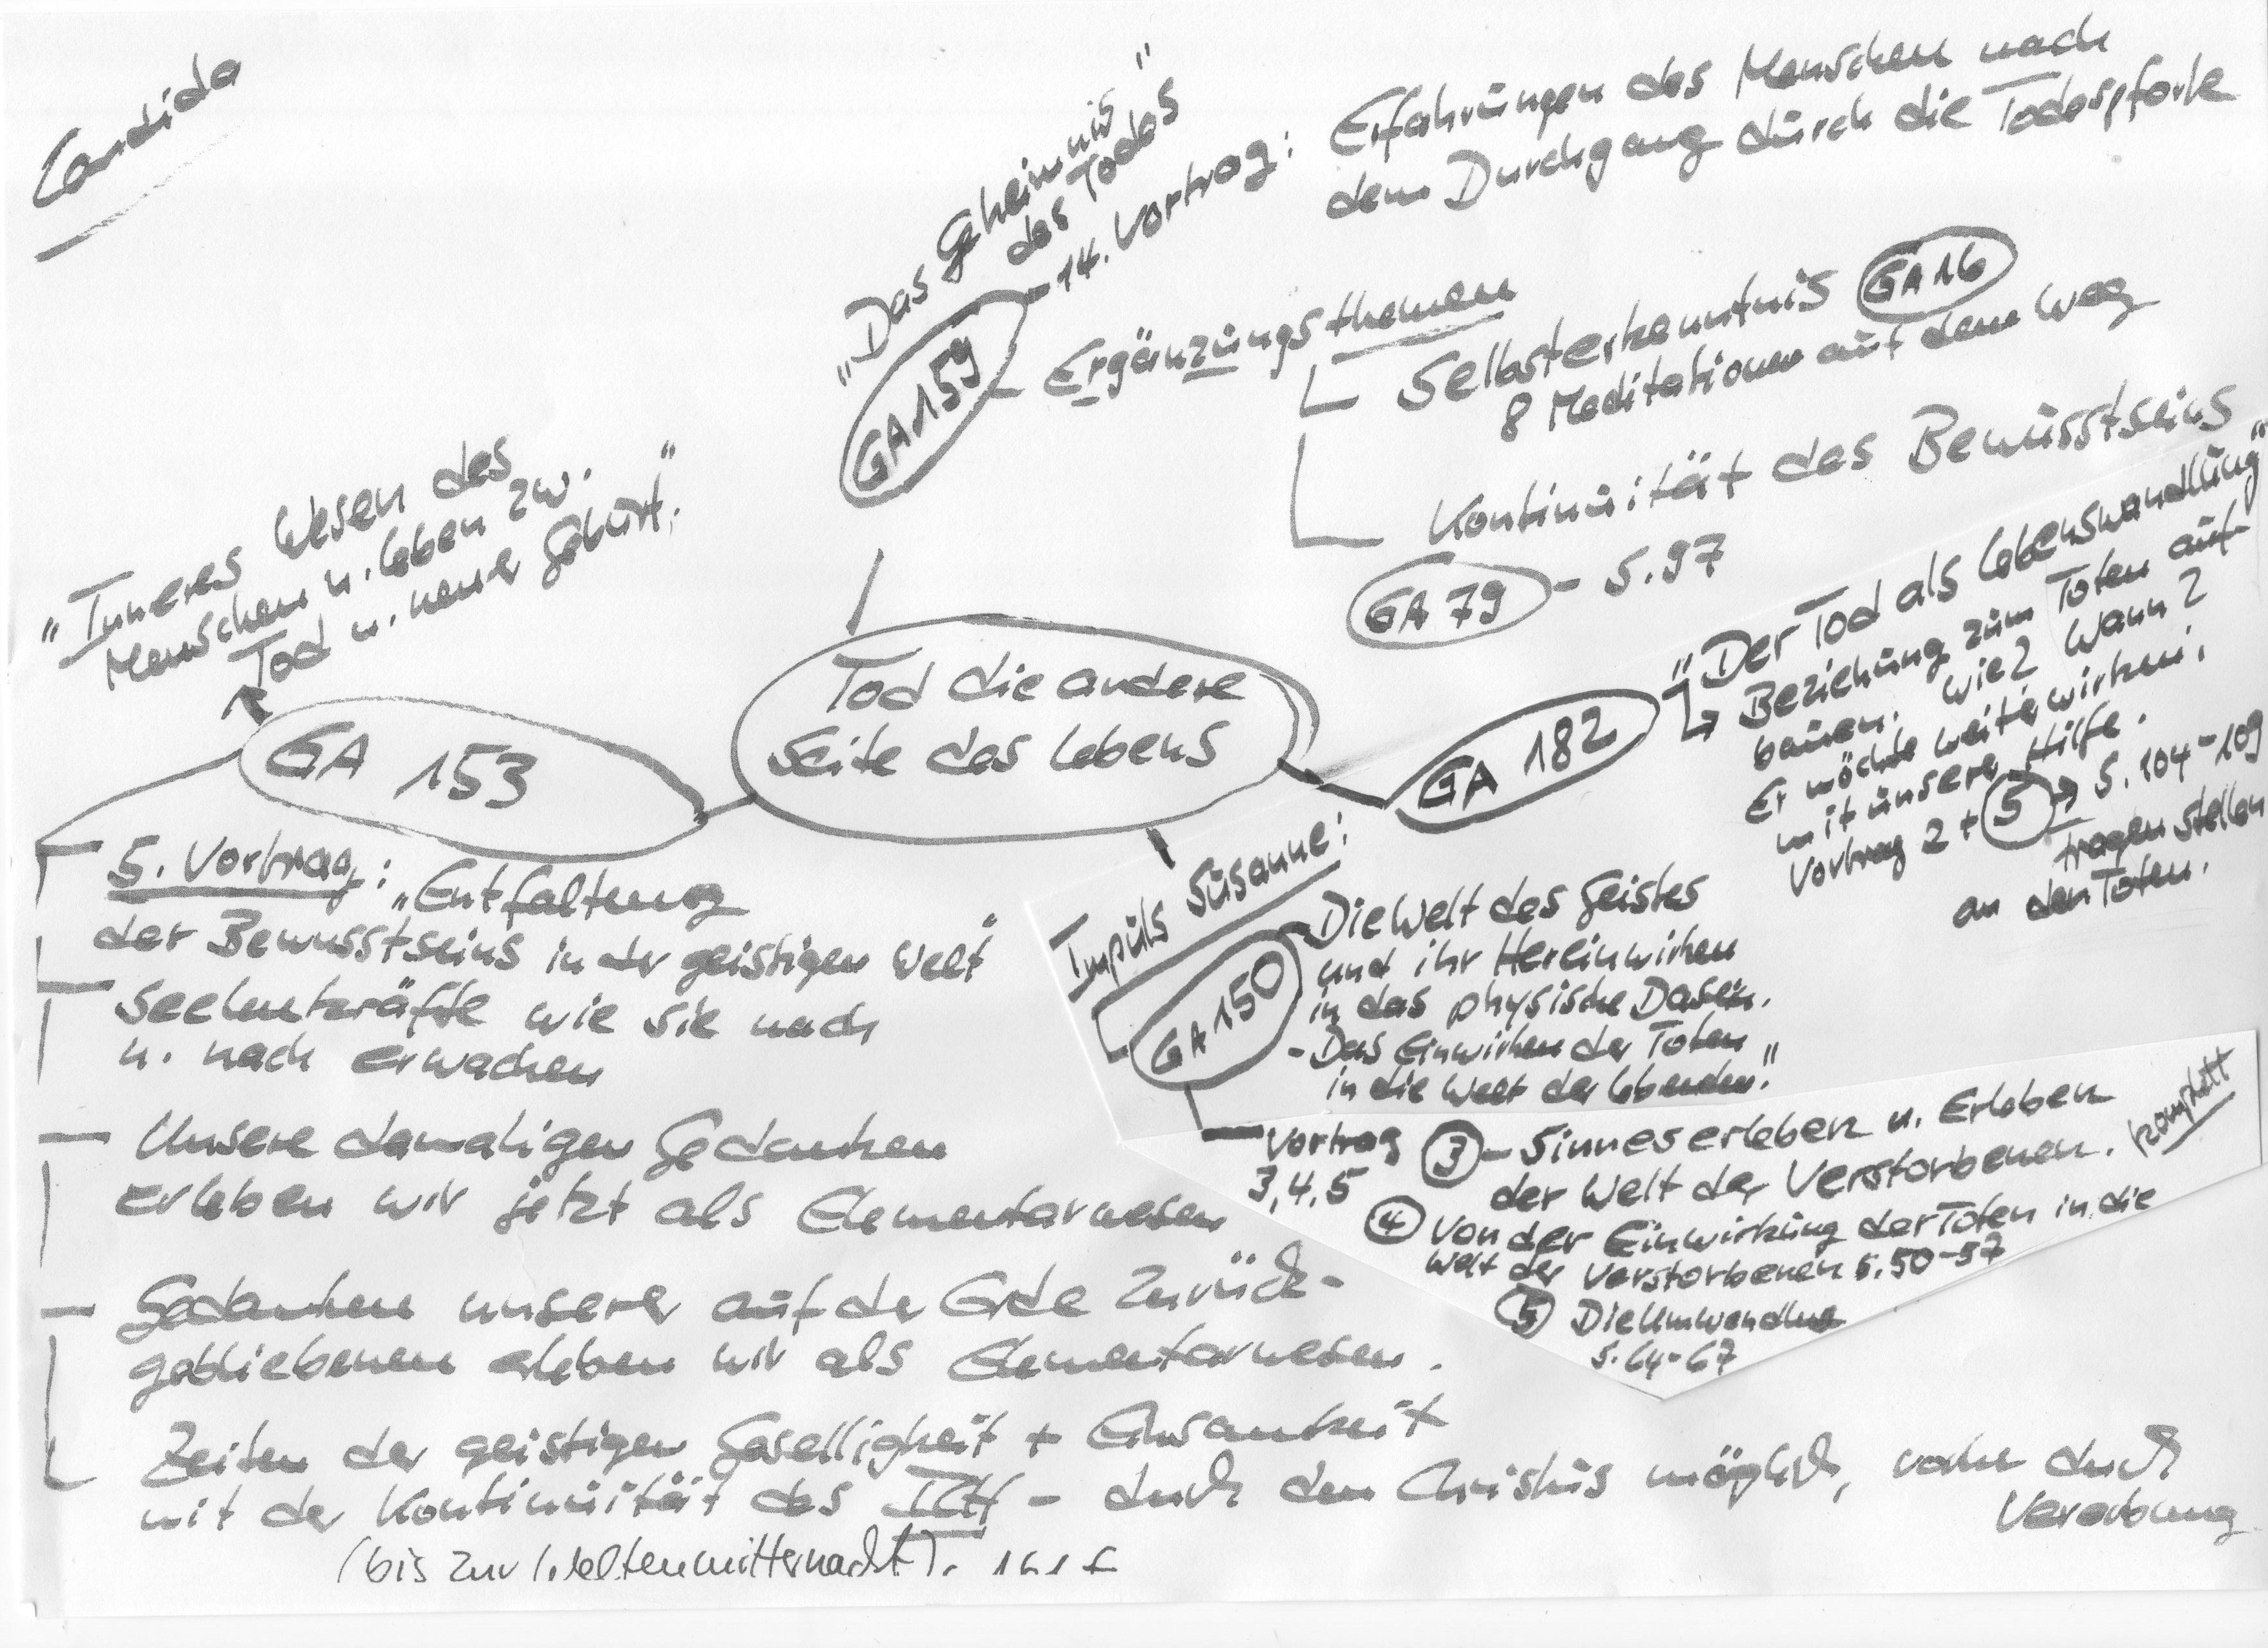 Candida
"Das Geheimnis
des Todes"
GA 159
14. Vortrag: Erfahrungen des Menschen nach
dem Durchgang durch die Todespforte
Ergänzungsthemen
Selbsterkenntnis GA 16
8 Meditationen auf dem Weg
Kontinuität des Bewusstseins
GA 79 - S. 97
"Inneres Wesen des
Menschen u. Leben zw.
Tod u. neuer Geburt."
GA 153
Tod die andere
Seite des Lebens
GA 182
"Der Tod als Lebenswandlung"
Beziehung zum Toten auf-
bauen. Wie? Wann?
Er möchte weiterwirken,
mit unserer Hilfe.
Vortrag 2 + 5 → S. 104-109
Fragen stellen
an den Toten.
5. Vortrag: "Entfaltung
der Bewusstseins in der geistigen Welt"
Seelenkräfte wie sie nach
u. nach erwachen
Unsere damaligen Gedanken
erleben wir jetzt als Elementarwesen
Gedanken unserer auf der Erde Zurück-
gebliebenen erleben wir als Elementarwesen.
Zeiten der geistigen Geselligkeit + Einsamkeit
mit der Kontinuität des ICH - durch den Christus möglich, vorher durch
Vererbung
(bis zur Weltenmitternacht).
Impuls Susanne:
GA 150
Die Welt des Geistes
und ihr Hereinwirken
in das physische Dasein.
- Das Einwirken der Toten
in die Welt der Lebenden."
Vortrag
3, 4, 5
③ - Sinneserleben u. Erleben
der Welt der Verstorbenen. komplett
④ Von der Einwirkung der Toten in die
Welt der Verstorbenen S. 50-57
⑤ Die Umwendung
S. 64-67